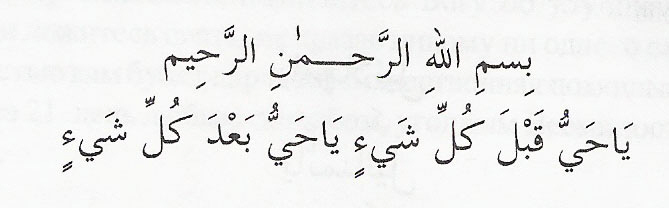 بِسمِ اللهِ الرَّحـــمٰنِ الرَّحِيم
ياحَيُّ قَبْلَ كُلِّ شَيءٍ يَاحَيُّ بَعْدَ كُلِّ شَيءٍ